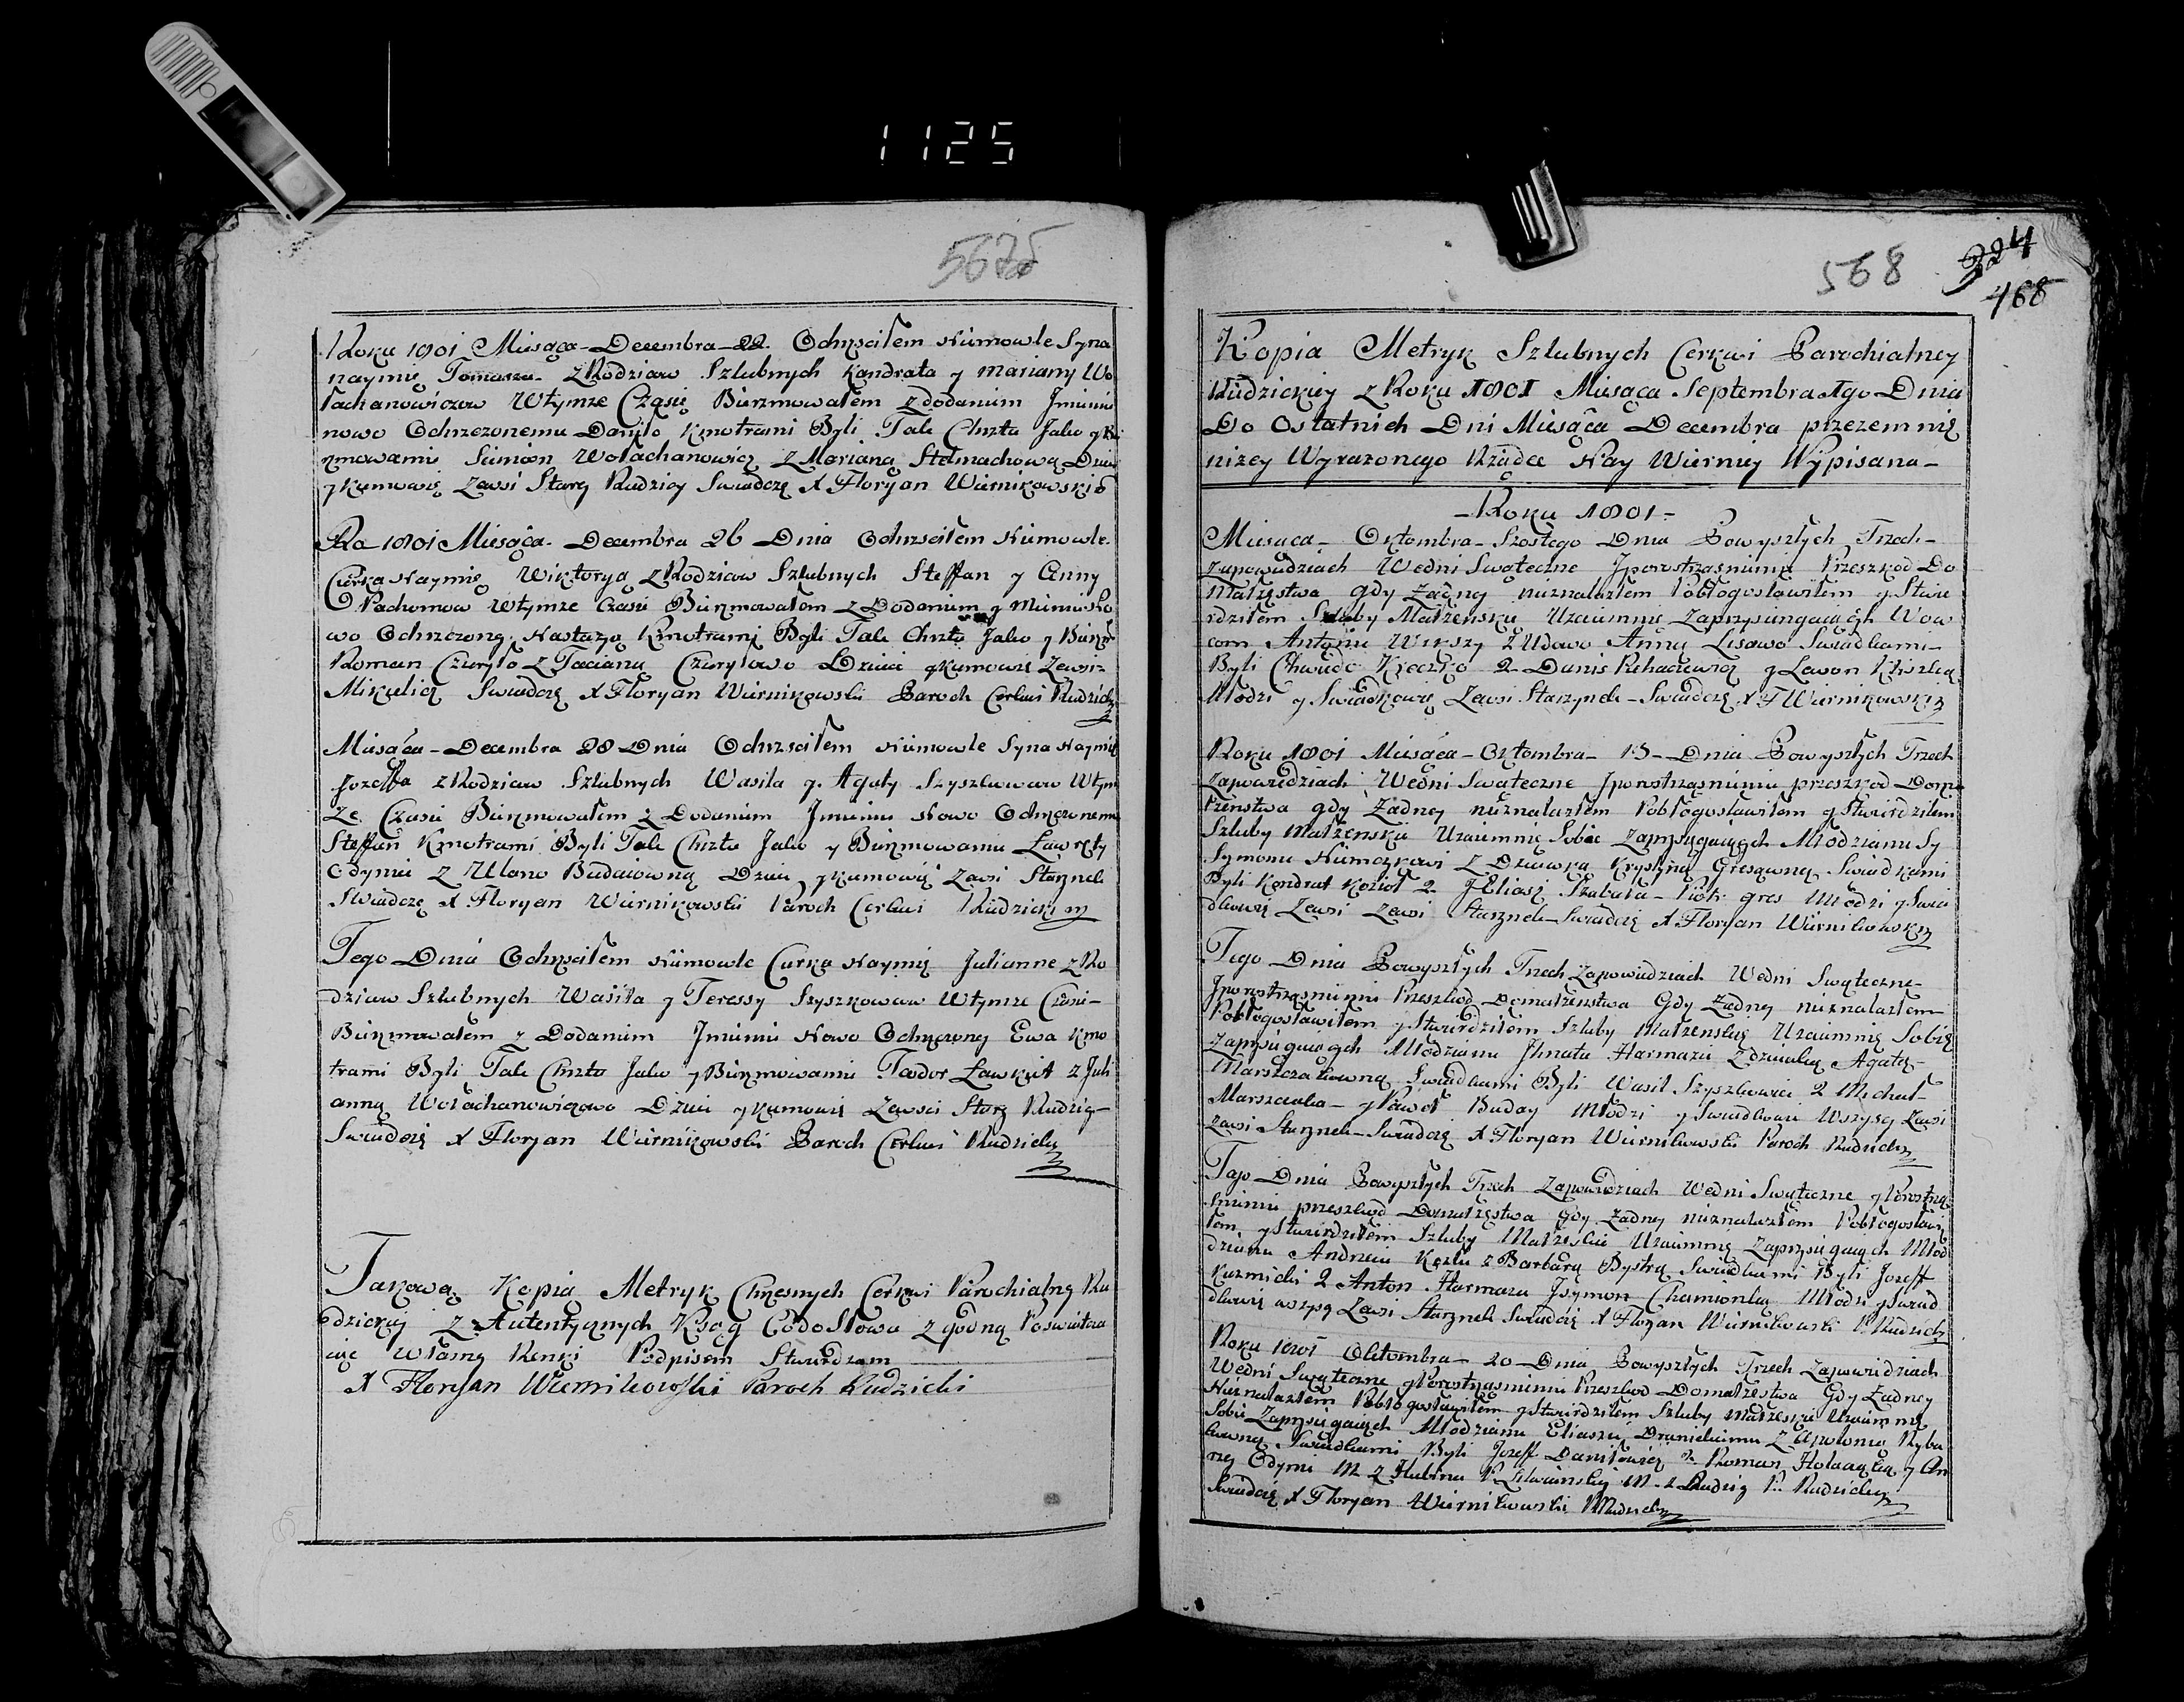 1125
567
Roku 1801 Miesąca Decembra 22 Ochrzciłem Niemowle Syna
naymię Tomasza z Rodziców Szlubnych Kandrata y Marianny Wo
łachanowiczow Wtymże Czasię Bierzmowałem z dodaniem Jmieniu
nowo Ochrzczonemu Daniło Kmotrami Byli Tak Chrztu Jako y Bi
rzmowaniu Simion Wołachanowicz z Marianą Stelmachową Dziei
y kumowie Zewsi Starey Rudzicy Swiadczę X Floryan Wiernikowski
Ro 1801 Miesąca Decembra 26 Dnia Ochrzciłem Niemowle
Curkę Naymię Wiktoryą z Rodziców Szlubnych Steffan y Anny
Pachomow Wtymże Czasie Bierzmowałem z Dodaniem y Mieniu No
wo Ochrzczoney Nastazya Kmotrami Byli Tak Chrztu Jako y Bierz
Roman Czuryło z Tacianą Czuryłowo Dzieci y kumowie Zewsi
Mikulicz Swiadczę X Floryan Wiernikowski Paroch Cerkwi Rudzicky
Miesąca Decembra 28 Dnia Ochrzciłem Niemowle Syna Naymię
Jozeffa z Rodziców Szlubnych Wasila y Agaty Szyszkowow Wtym
Ze Czasie Bierzmowałem z Dodaniem Jmieniu Nowo Ochrzczonemu
Steffan Kmotrami Byli Tak Chrztu Jako y Bierzmowaniu Ławręty
Odyniec z Ulano Budaiowną Dzieci y kumowie Zewsi Starzynek
Swiadczę X Floryan Wiernikowski Paroch Cerkwi Rudzicki
Tego Dnia Ochrzciłem Niemowle Curkę Naymię Julianne z Ro
dziców Szlubnych Wasila y Teressy Szyszkowow Wtymże Czasi
Bierzmowałem z Dodaniem Jmieniu Nowo Ochrzczoney Ewa Kmo
trami Byli Tak Chrztu Jako y Bierzmowaniu Teodor Ławkiet z Juli
anną Wołachanowiczowo Dzieci y kumowie Zewsci Starey Rudzicy
Swiadczę X Floryan Wiernikowski Paroch Cerkwi Rudzicky
Takową Kopią Metryk Chrzesnych Cerkwi Parochialney Ru
dzickiey z Autentycznych Ksiąg Codosłowa zgodną Poswiatcza
iąc Własney Renki Podpisem Stwierdzam
X Floryan Wiernikowski Paroch Rudzicki
568 324
468
Kopia Metryk Szlubnych Cerkwi Parochialney
Rudzickiey z Roku 1801 Miesąca Septembra 1go Dnia
Do Ostatnich Dni Miesąca Decembra przezemnie
niżey Wyrażonego Rządce Nay Wierniey Wypisana
Roku 1801
Miesąca Oktombra Szostego Dnia Powyszłych Trzech
Zapowiedziach Wedni Swąteczne Jporostrząsnieniu Przeszkod Do
Małżęstwa gdy Żadney nieznalazłem Pobłogosławiłem y Stwie
rdziłem Szluby Małżenskie Uzaiemnie Zaprzysiengaiących Wow
com Antoniu Wierszy z Udowo Anną Lisowo Swiadkami
Byli Chwiedo Kręczko 2 Danis Rehacewicz y Lawon Kłiszka
Młodzi y Swiadkowie Zewsi Starzynek Swiadczę X F Wiernikowski
Roku 1801 Miesąca Oktombra 13 Dnia Powyszłych Trzech
Zapowiedziach Wedni Swąteczne Jporostrząsnieniu przeszkod Doma
łżenstwa gdy Żadney nieznalazłem Pobłogosławiłem y Stwierdziłem
Szluby Małżenskie Uzaiemnie Sobie Zaprzysięgaiących Młodzianu Sy
Symonu Niemczykowi z Dziewką Krystyną Gresowną Swiadkami
Byli Kondrat Kozioł 2 JEliasz Szabuła Piotr gres Młodzi y Swia
dkowie Zewsi Zewsi Starzynek Swiadczę X Floryan Wiernikowski
Tego Dnia Powyszłych Trzech Zapowiedziach Wedni Swąteczne
Jporostrząsnieniu Przeszkod Domałżenstwa Gdy Żadney nieznalazłem
Pobłogosławiłem y Stwierdziłem Szluby Małżenskie Uzaiemnie Sobie
Zaprzysięgaiących Młodzianu Jhnatu Harmazu z dziewką Agatą
Marszczałkowną Swiadkami Byli Wasil Szyszkowicz 2 Michał
Marszałka y Paweł Buday Młodzi y Swiadkowie Wszyscy Zewsi
Zewsi Starzynek Swiadczę X Floryan Wiernikowski Paroch Rudzicky
Tego Dnia Powyszłych Trzech Zapowiedziach Wedni Swąteczne y Porostrzą
snieniu przeszkod Domałżęstwa Gdy Żadney nieznalazłem Pobłogosławi
łem y Stwierdziłem Szluby Małżeskie Uzaiemnie Zaprzysięgaiących Mło
dzianu Andreiu Kozlu z Barbarą Bystrą Swiadkami Byli Jozeff
Kuzmicki 2 Anton Harmaza Jsymon Chamionka Młodzi y Swiad
dkowie wszyscy Zewsi Starzynek Swiadczę X Floryan Wiernikowski P Rudzicky
Roku 1801 Oktombra 20 Dnia Powyszłych Trzech Zapowiedziach
Wedni Swąteczne y Porostrząsnieniu Przeszkod Domałżestwa Gdy Żadney
Nieznalazłem Pobłogosławiłem y Stwierdziłem Szluby Małżeskie Uzaiemnie
Sobie Zaprzysięgaiących Młodzianu Eliaszu Dranickiemu z Apolonią Ryba
kowną Swiadkami Byli Jozeff Daniłowicz 2 Roman y An
rzey Odyniec M z Hubina M z Rudzicy P. Rudzicky
Swiadczę X Floryan Wiernikowski P Rudzicky